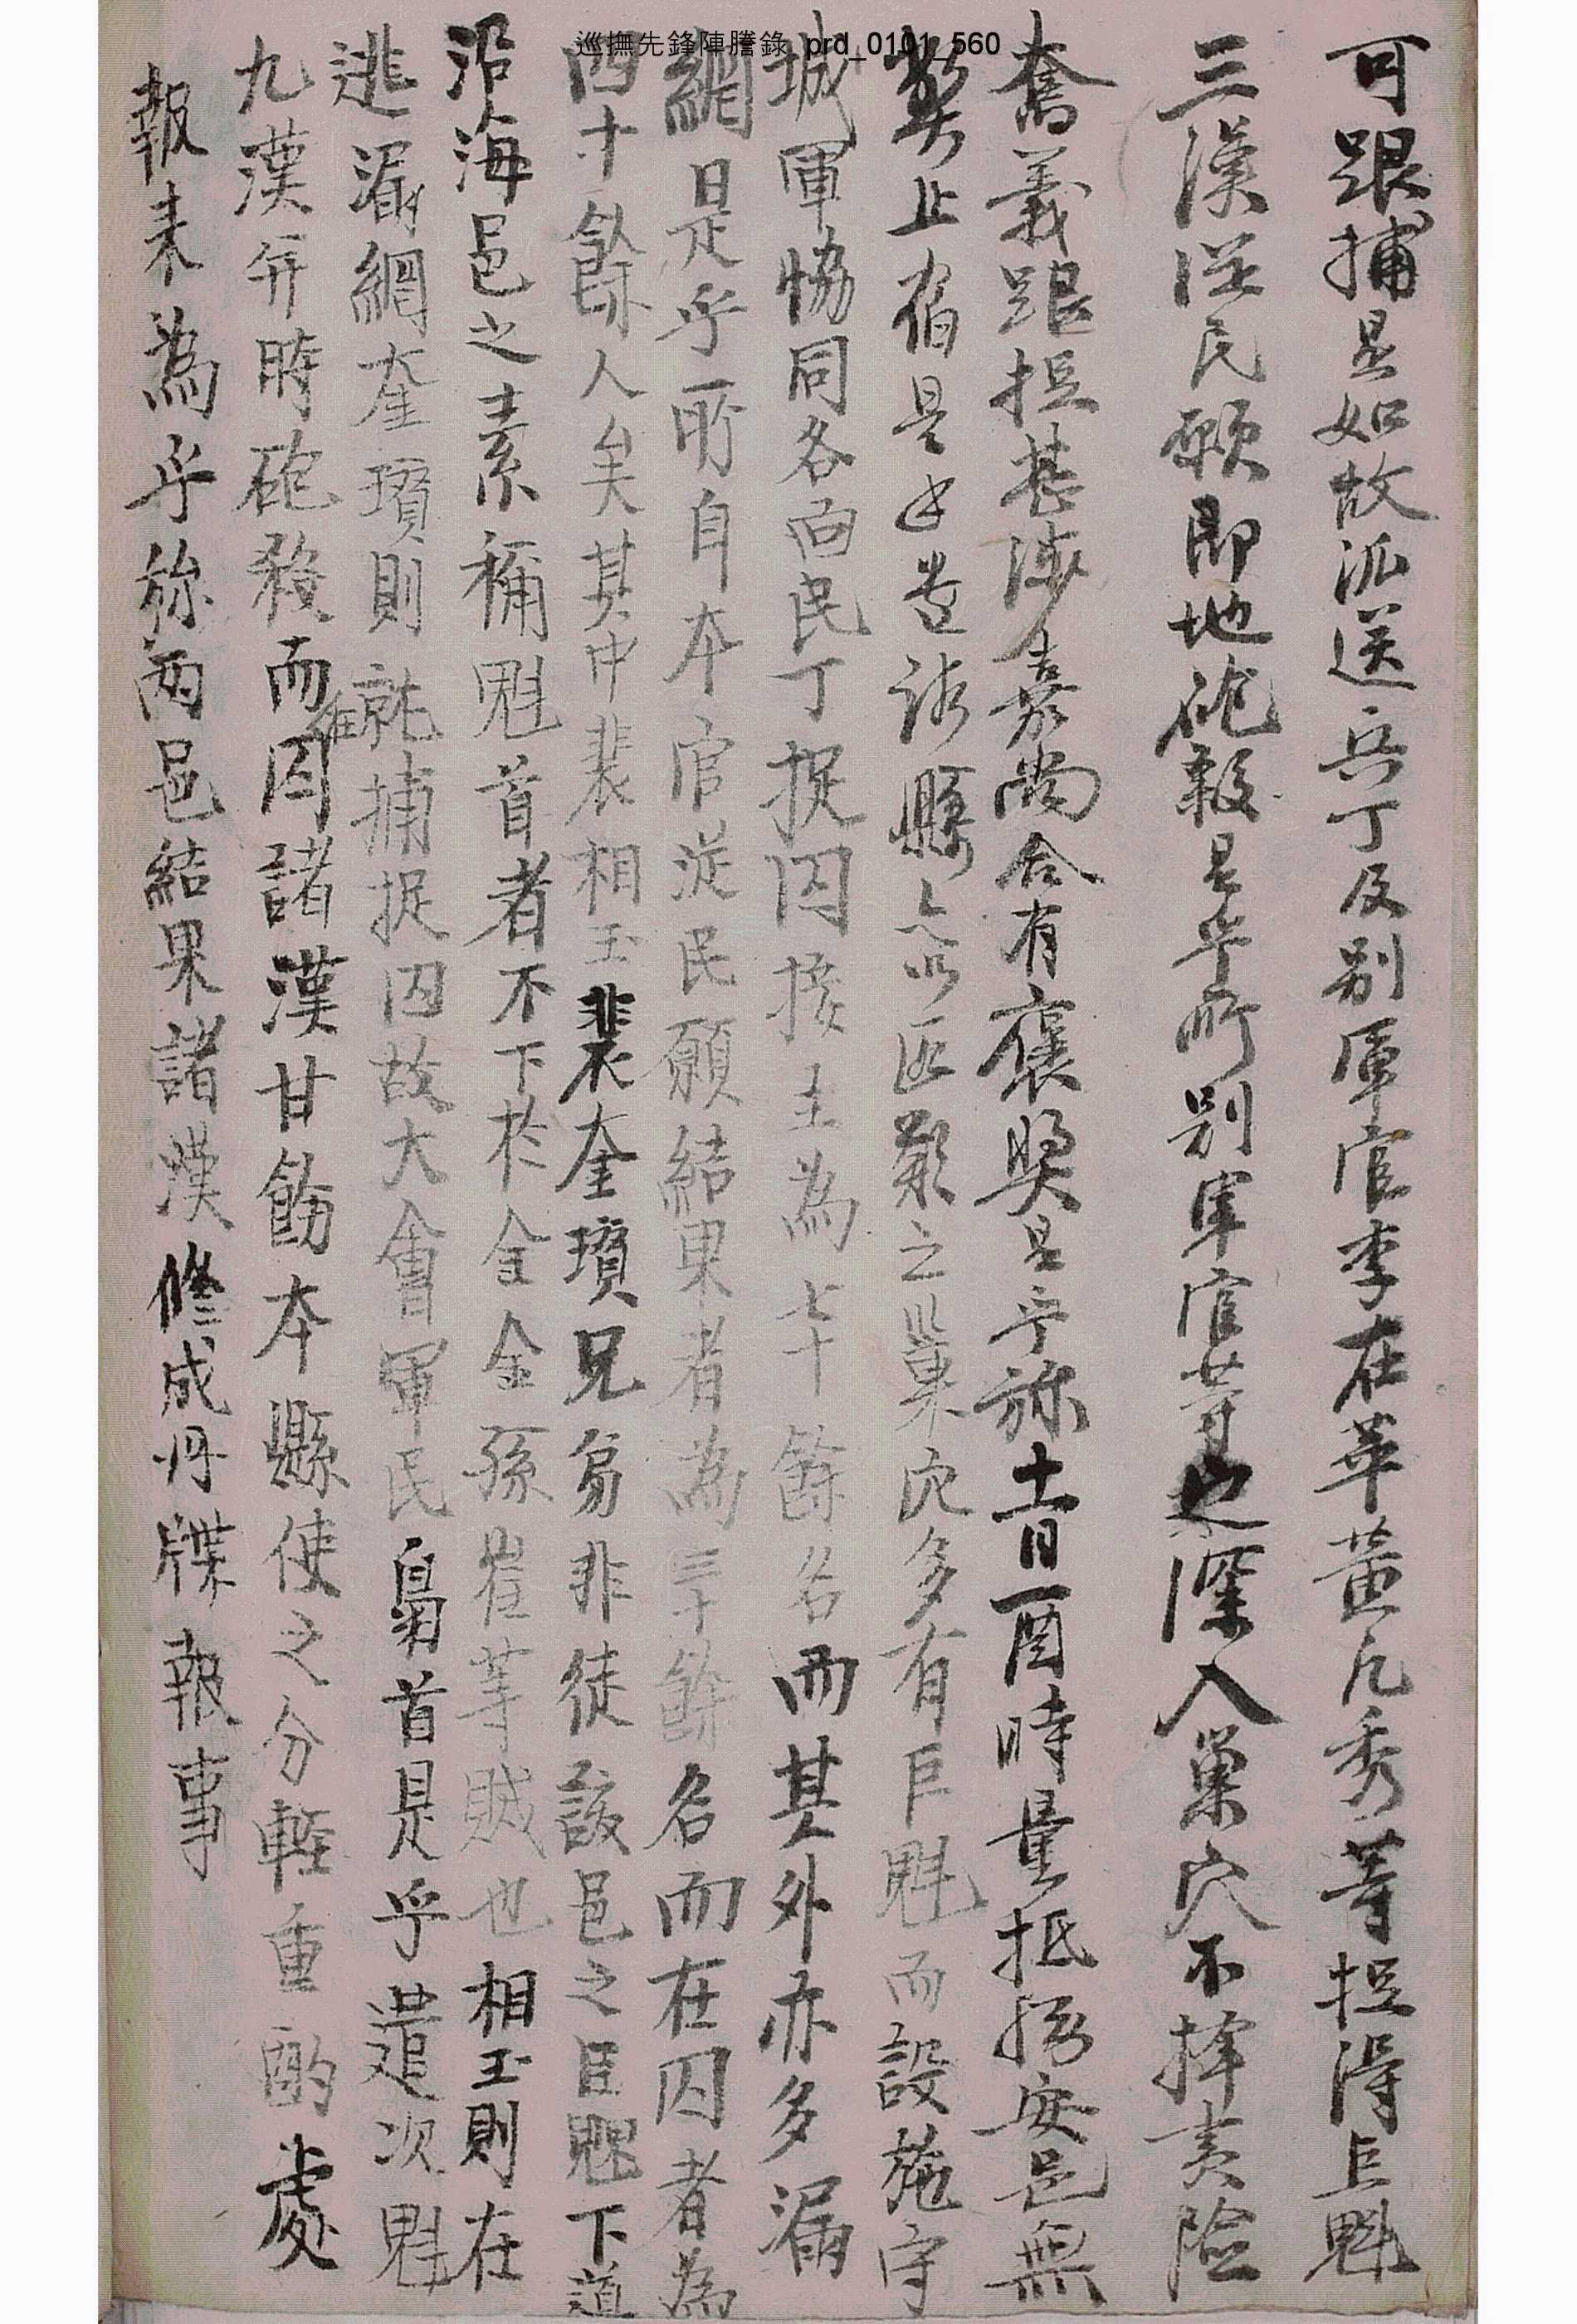 巡撫先鋒陣謄錄_prd_0101_560
可跟捕是如故派送兵丁及別軍官李在華黃凡秀等捉得巨魁
三漢從民願卽地砲殺是乎所別軍官等之深入巢穴不擇夷險
奮義跟捉甚涉嘉尙合有褒奬是乎㫆十一日酉時量抵務安邑無
弊止宿是乎遣該縣亦以匪類之巢穴多有巨魁而設施守
城軍恊同各面民丁捉囚接主爲七十餘名而其外亦多漏
網是乎所自本官從民願結果者爲三十餘名而在囚者爲
四十餘人矣其中裴相玉裴奎瓚兄弟非徒該邑之巨魁下道
沿海邑之素稱魁首者不下於全金孫崔等賊也相玉則在
逃漏網奎瓚則就捕捉囚故大會軍民梟首是乎遣次魁
九漢幷時砲殺而在囚諸漢甘飭本縣使之分輕重酌處
報來爲乎㫆兩邑結果諸漢修成冊牒報事